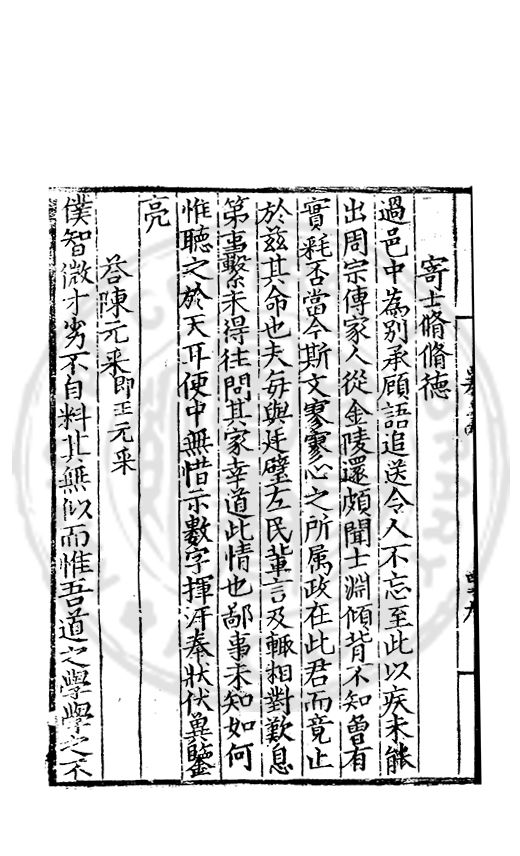 寄士脩脩德
過邑中為别承顧語追送令人不忘至此以疾未能
出周宗傳家人從金陵還頗聞士淵傾背不知曾有
實耗否當今斯文寥寥心之所属政在此君而竟止
於兹其命也夫每與廷璧左民輩言及輙相對歎息
第事繫未得往問其家幸道此情也鄙事未知如何
惟聽之於天耳便中無惜示數字揮汗奉狀伏兾鑒
亮
荅陳元采即正元采
僕智微才劣不自料其無似而惟吾道之學學之不